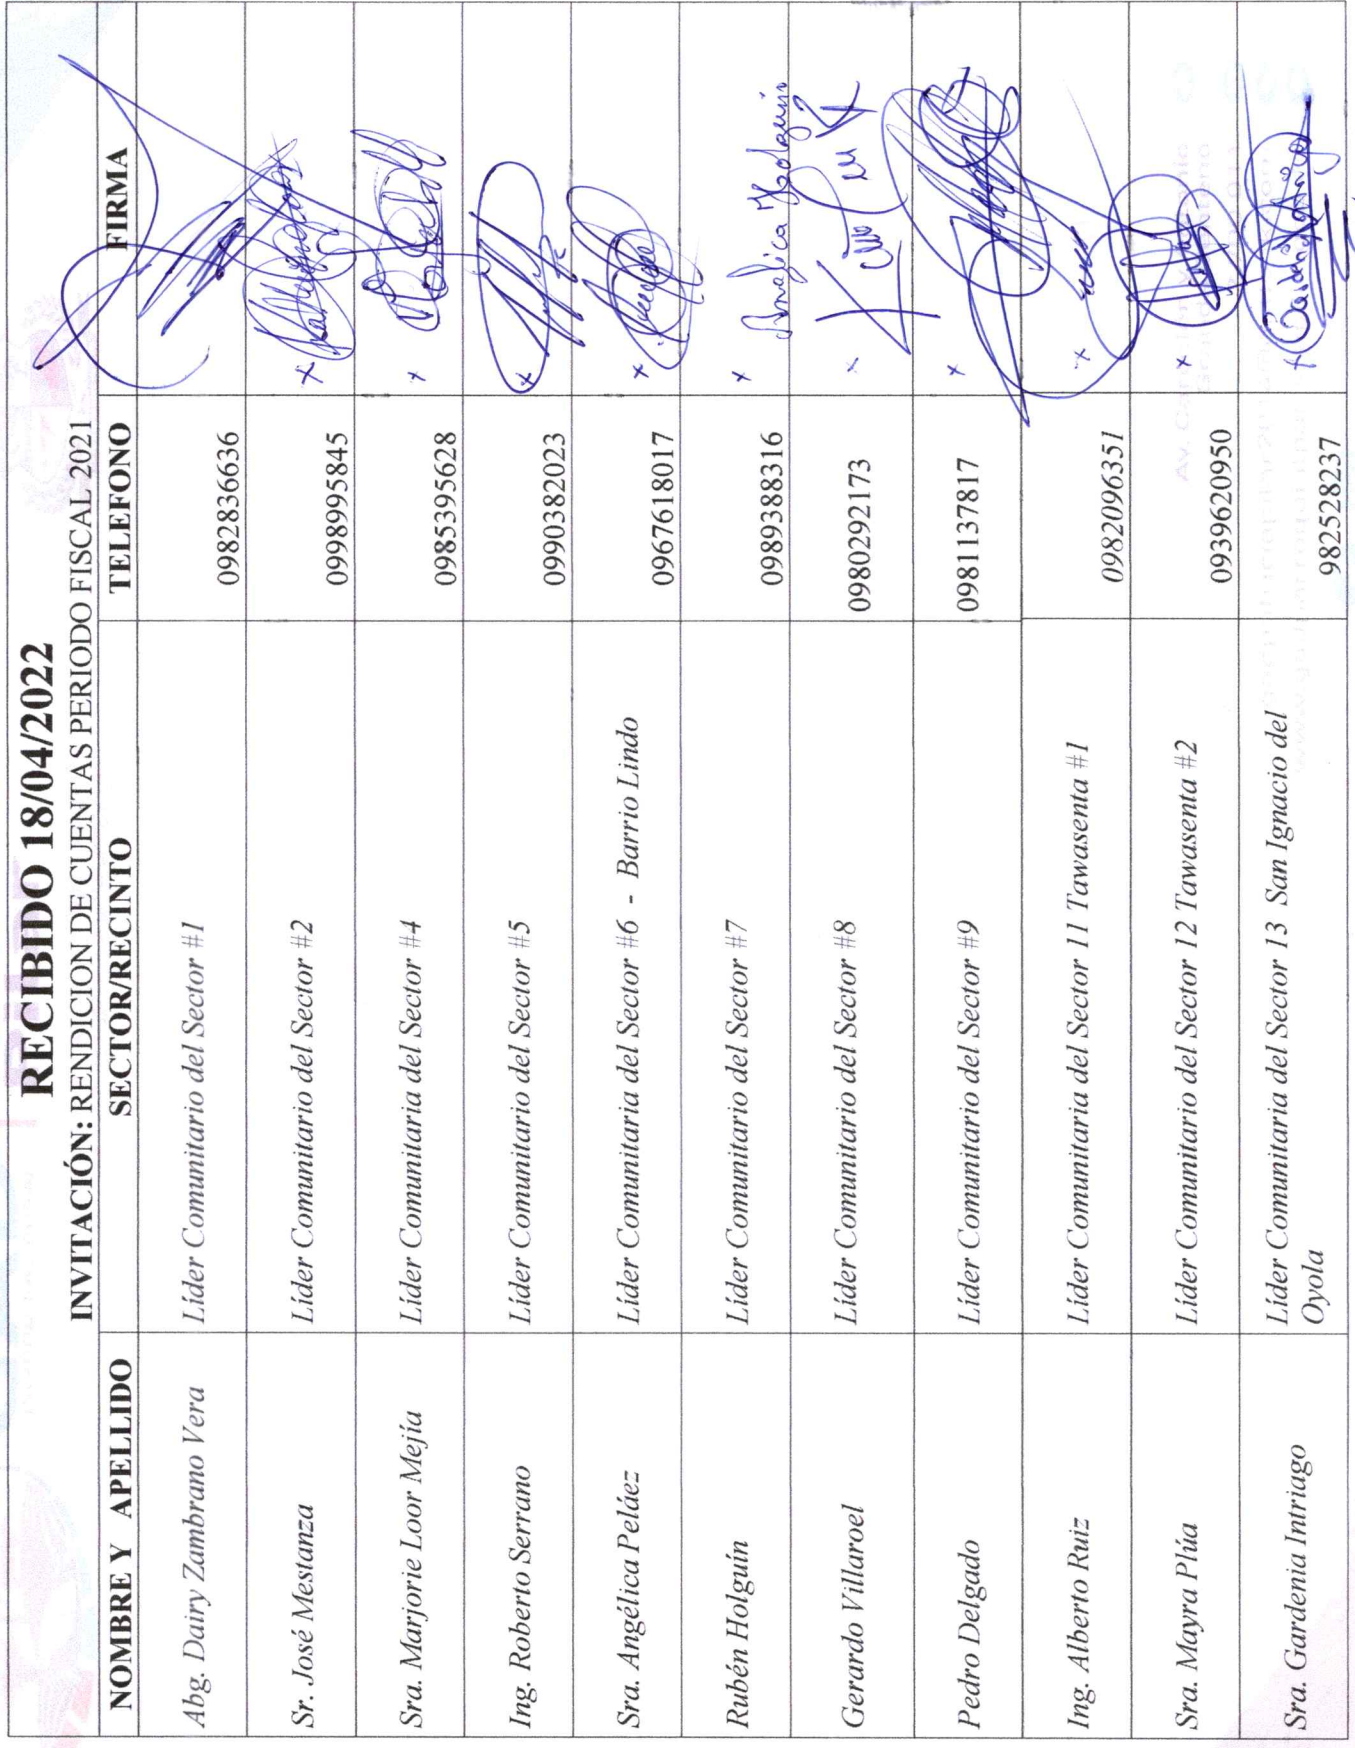 RECIBIDO 18/04/2022
INVITACIÓN: RENDICION DE CUENTAS PERIODO FISCAL 2021
NOMBRE Y APELLIDO SECTOR/RECINTO TELEFONO FIRMA
Abg. Dairy Zambrano Vera Líder Comunitario del Sector #1 0982836636
Sr. José Mestanza Líder Comunitario del Sector #2 0998995845 x
Sra. Marjorie Loor Mejía Líder Comunitaria del Sector #4 0985395628 x
Ing. Roberto Serrano Líder Comunitario del Sector #5 0990382023 x
Sra. Angélica Peláez Líder Comunitaria del Sector #6 - Barrio Lindo 0967618017 x
Rubén Holguín Líder Comunitario del Sector #7 0989388316 x Angélica Holguín
Gerardo Villaroel Líder Comunitario del Sector #8 0980292173 x
Pedro Delgado Líder Comunitario del Sector #9 0981137817 x
Ing. Alberto Ruiz Líder Comunitaria del Sector 11 Tawasenta #1 0982096351 x
Sra. Mayra Plúa Líder Comunitario del Sector 12 Tawasenta #2 0939620950 x
Sra. Gardenia Intriago Líder Comunitaria del Sector 13 San Ignacio del
Oyola 982528237 x Gardenia Intriago